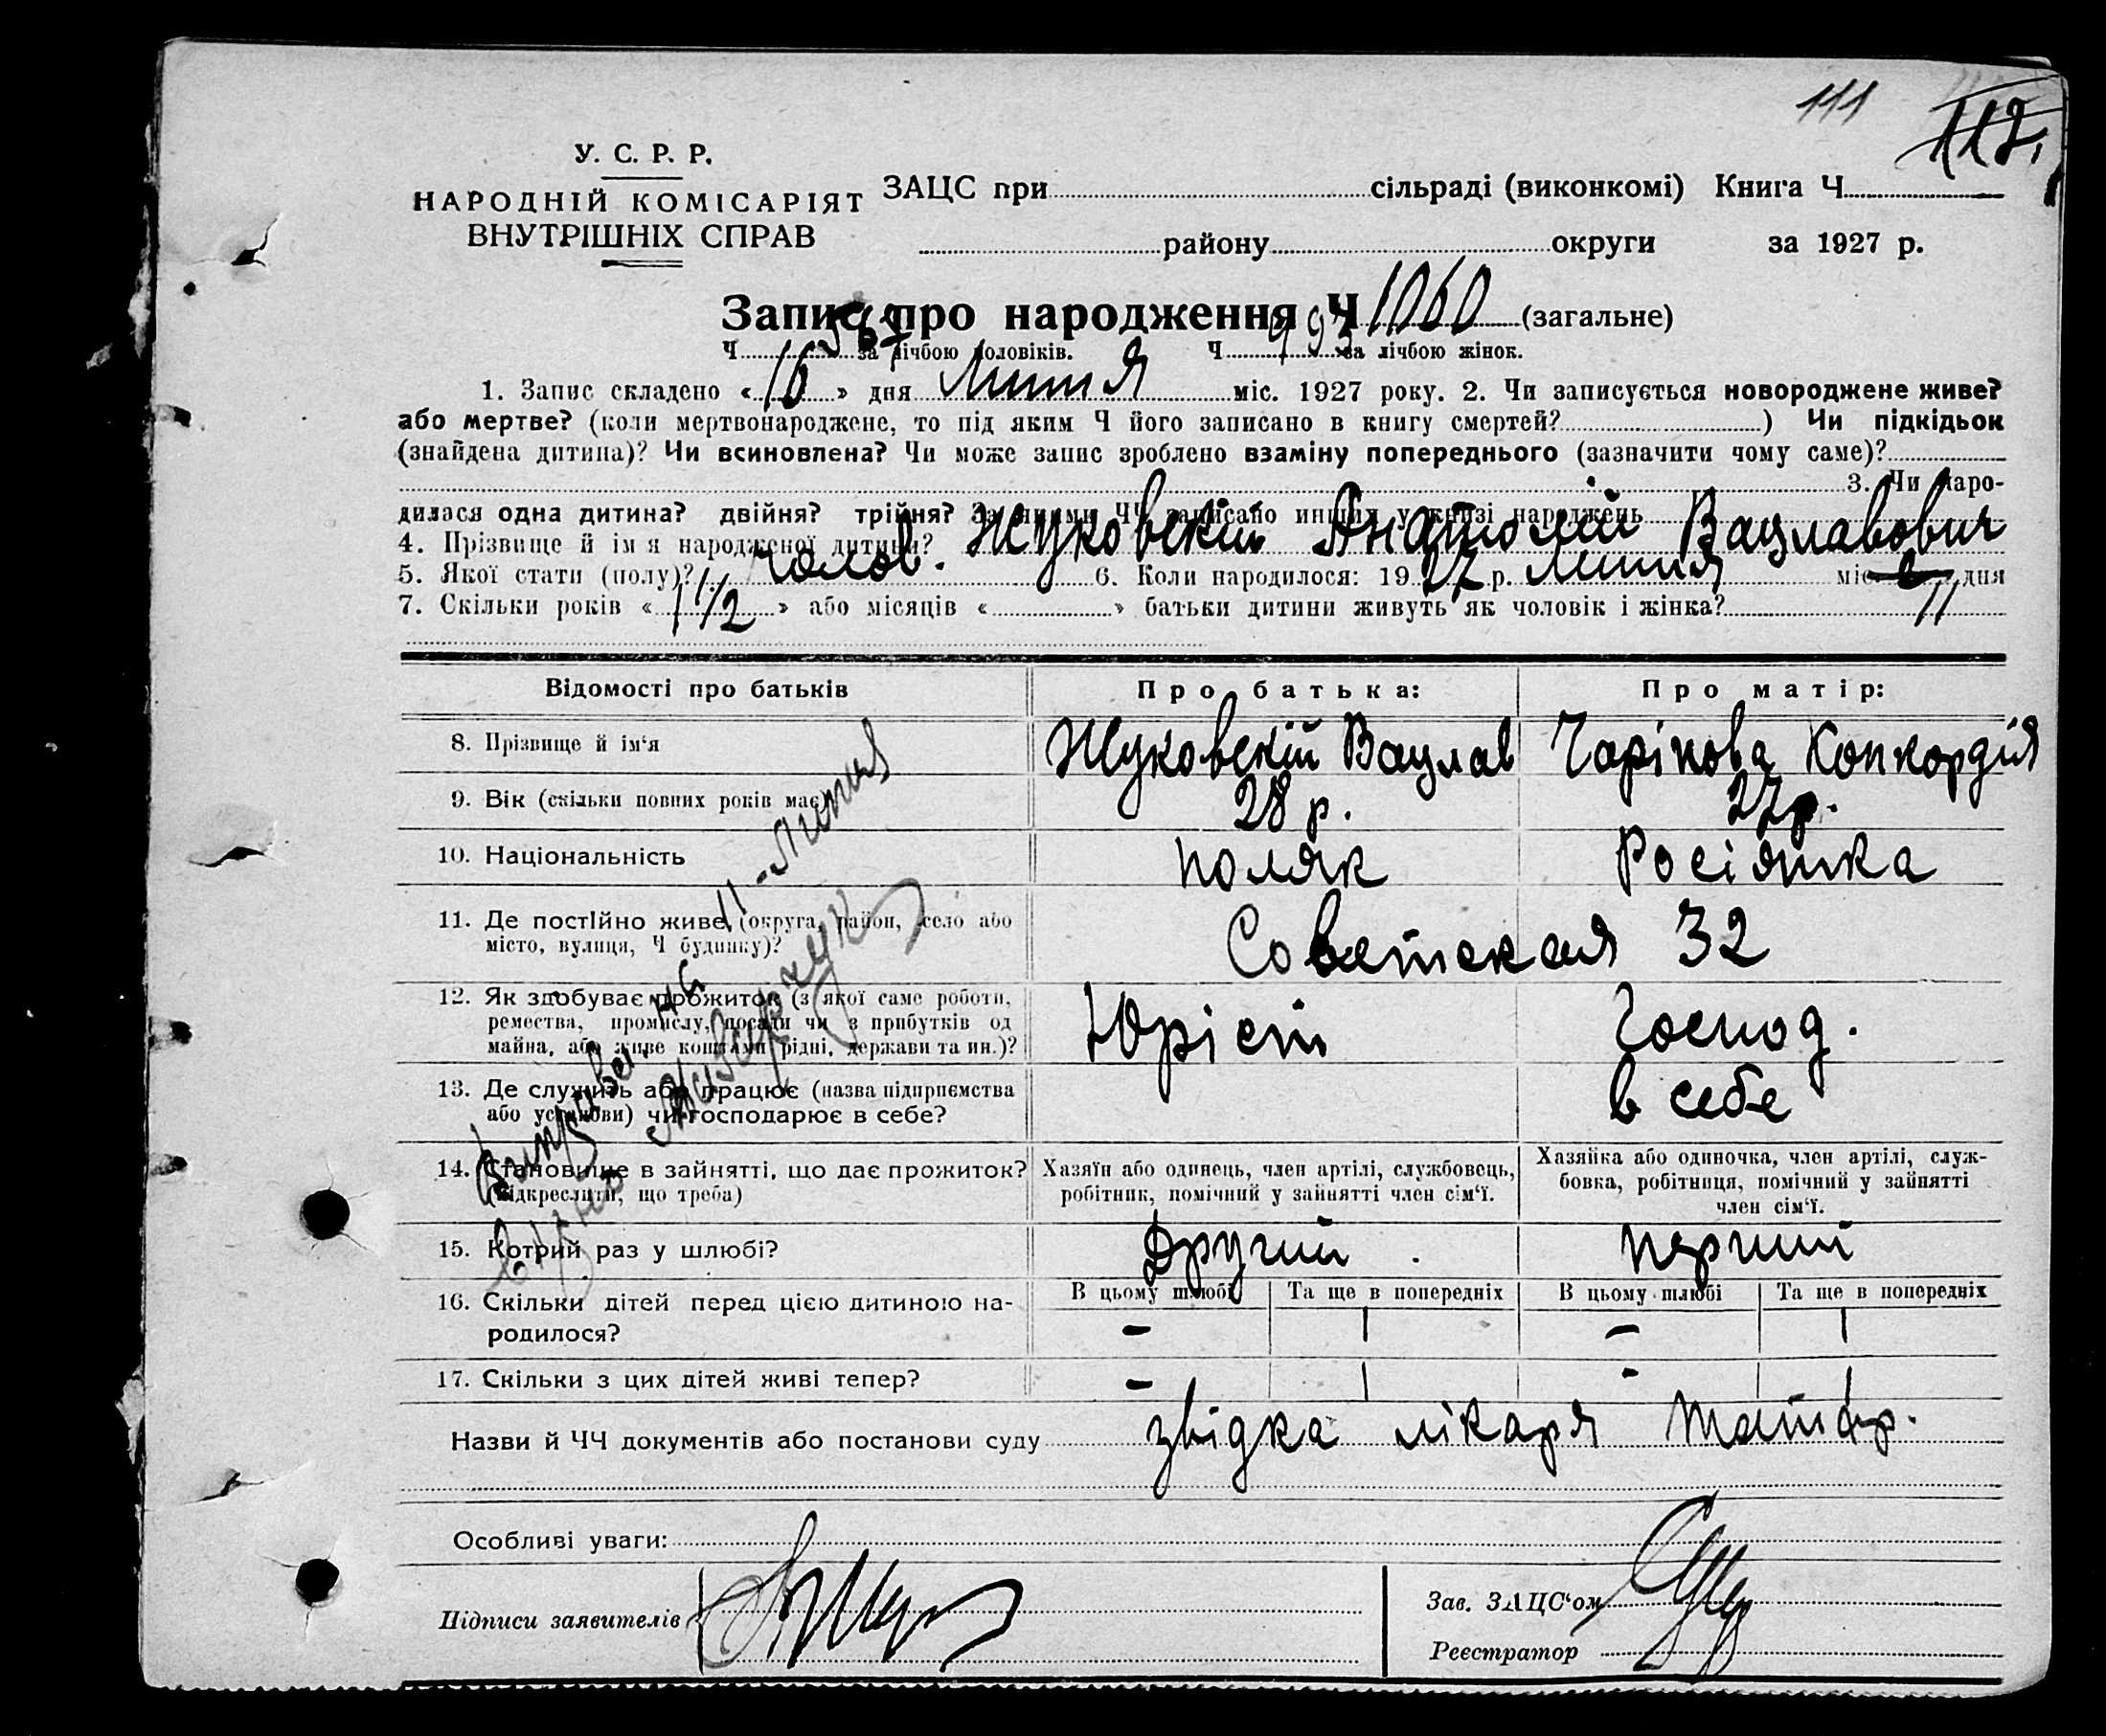 111
112
У. С. Р. Р.
НАРОДНІЙ КОМІСАРІЯТ
ВНУТРІШНІХ СПРАВ
ЗАЦС при сільраді (виконкомі) Книга Ч.
району округи за 1927 р.
Запис про народження Ч 1060 (загальне)
Ч. за лічбою чоловіків. Ч. 993 за лічбою жінок.
1. Запис складено « 16 » дня Липня міс. 1927 року. 2. Чи записується новороджене живе?
або мертве? (коли мертвонароджене, то під яким Ч його записано в книгу смертей? ) Чи підкідьок
(знайдена дитина)? Чи всиновлена? Чи може запис зроблено взаміну попереднього (зазначити чому саме)?
3. Чи наро-
дилася одна дитина? двійня? трійня? За якими ЧЧ записано инших у книзі народжень
4. Прізвище й ім'я народженої дитини? Жуковскій Анатолій Вацлавович
5. Якої стати (полу)? чолов. 6. Коли народилося: 1927 р. липня міс. 11 дня
7. Скільки років « 1 1/2 » або місяців « » батьки дитини живуть як чоловік і жінка?
Відомості про батьків Про батька: Про матір:
8. Прізвище й ім'я Жуковскій Вацлав Чарікова Конкордія
9. Вік (скільки повних років має) 28 р. 27 р.
10. Національність поляк Росіянка
11. Де постійно живе (округа, район, село або
місто, вулиця, Ч будинку)? Советская 32
12. Як здобуває прожиток (з якої саме роботи,
ремества, промислу, посади чи з прибутків од
майна, або живе коштами рідні, держави та ин.)? Юріст Господ.
13. Де служить або працює (назва підприємства
або установи) чи господарює в себе? в себе
14. Становище в зайнятті, що дає прожиток?
(підкреслити, що треба)
Хазяїн або одинець, член артілі, службовець,
робітник, помічний у зайнятті член сім'ї.
Хазяйка або одиночка, член артілі, служ-
бовка, робітниця, помічний у зайнятті
член сім'ї.
15. Котрий раз у шлюбі? Другий перший
16. Скільки дітей перед цією дитиною на-
родилося?
В цьому шлюбі Та ще в попередніх В цьому шлюбі Та ще в попередніх
– 1 – 1
17. Скільки з цих дітей живі тепер? – 1 – 1
Виправлен. на 11 – Липня
Назви й ЧЧ документів або постанови суду звідка лікаря
Особливі уваги:
Підписи заявителів
Зав. ЗАЦС'ом
Реєстратор